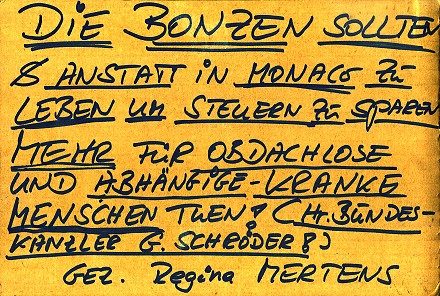 DIE BONZEN SOLLTEN
& ANSTATT in MONACO ZU
LEBEN UM STEUERN ZU SPAREN
MEHR FÜR OBDACHLOSE
UND ABHÄNGIGE-KRANKE
MENSCHEN TUEN! (H. BUNDES-
KANZLER G. SCHRÖDER &)
GEZ. Regina MERTENS